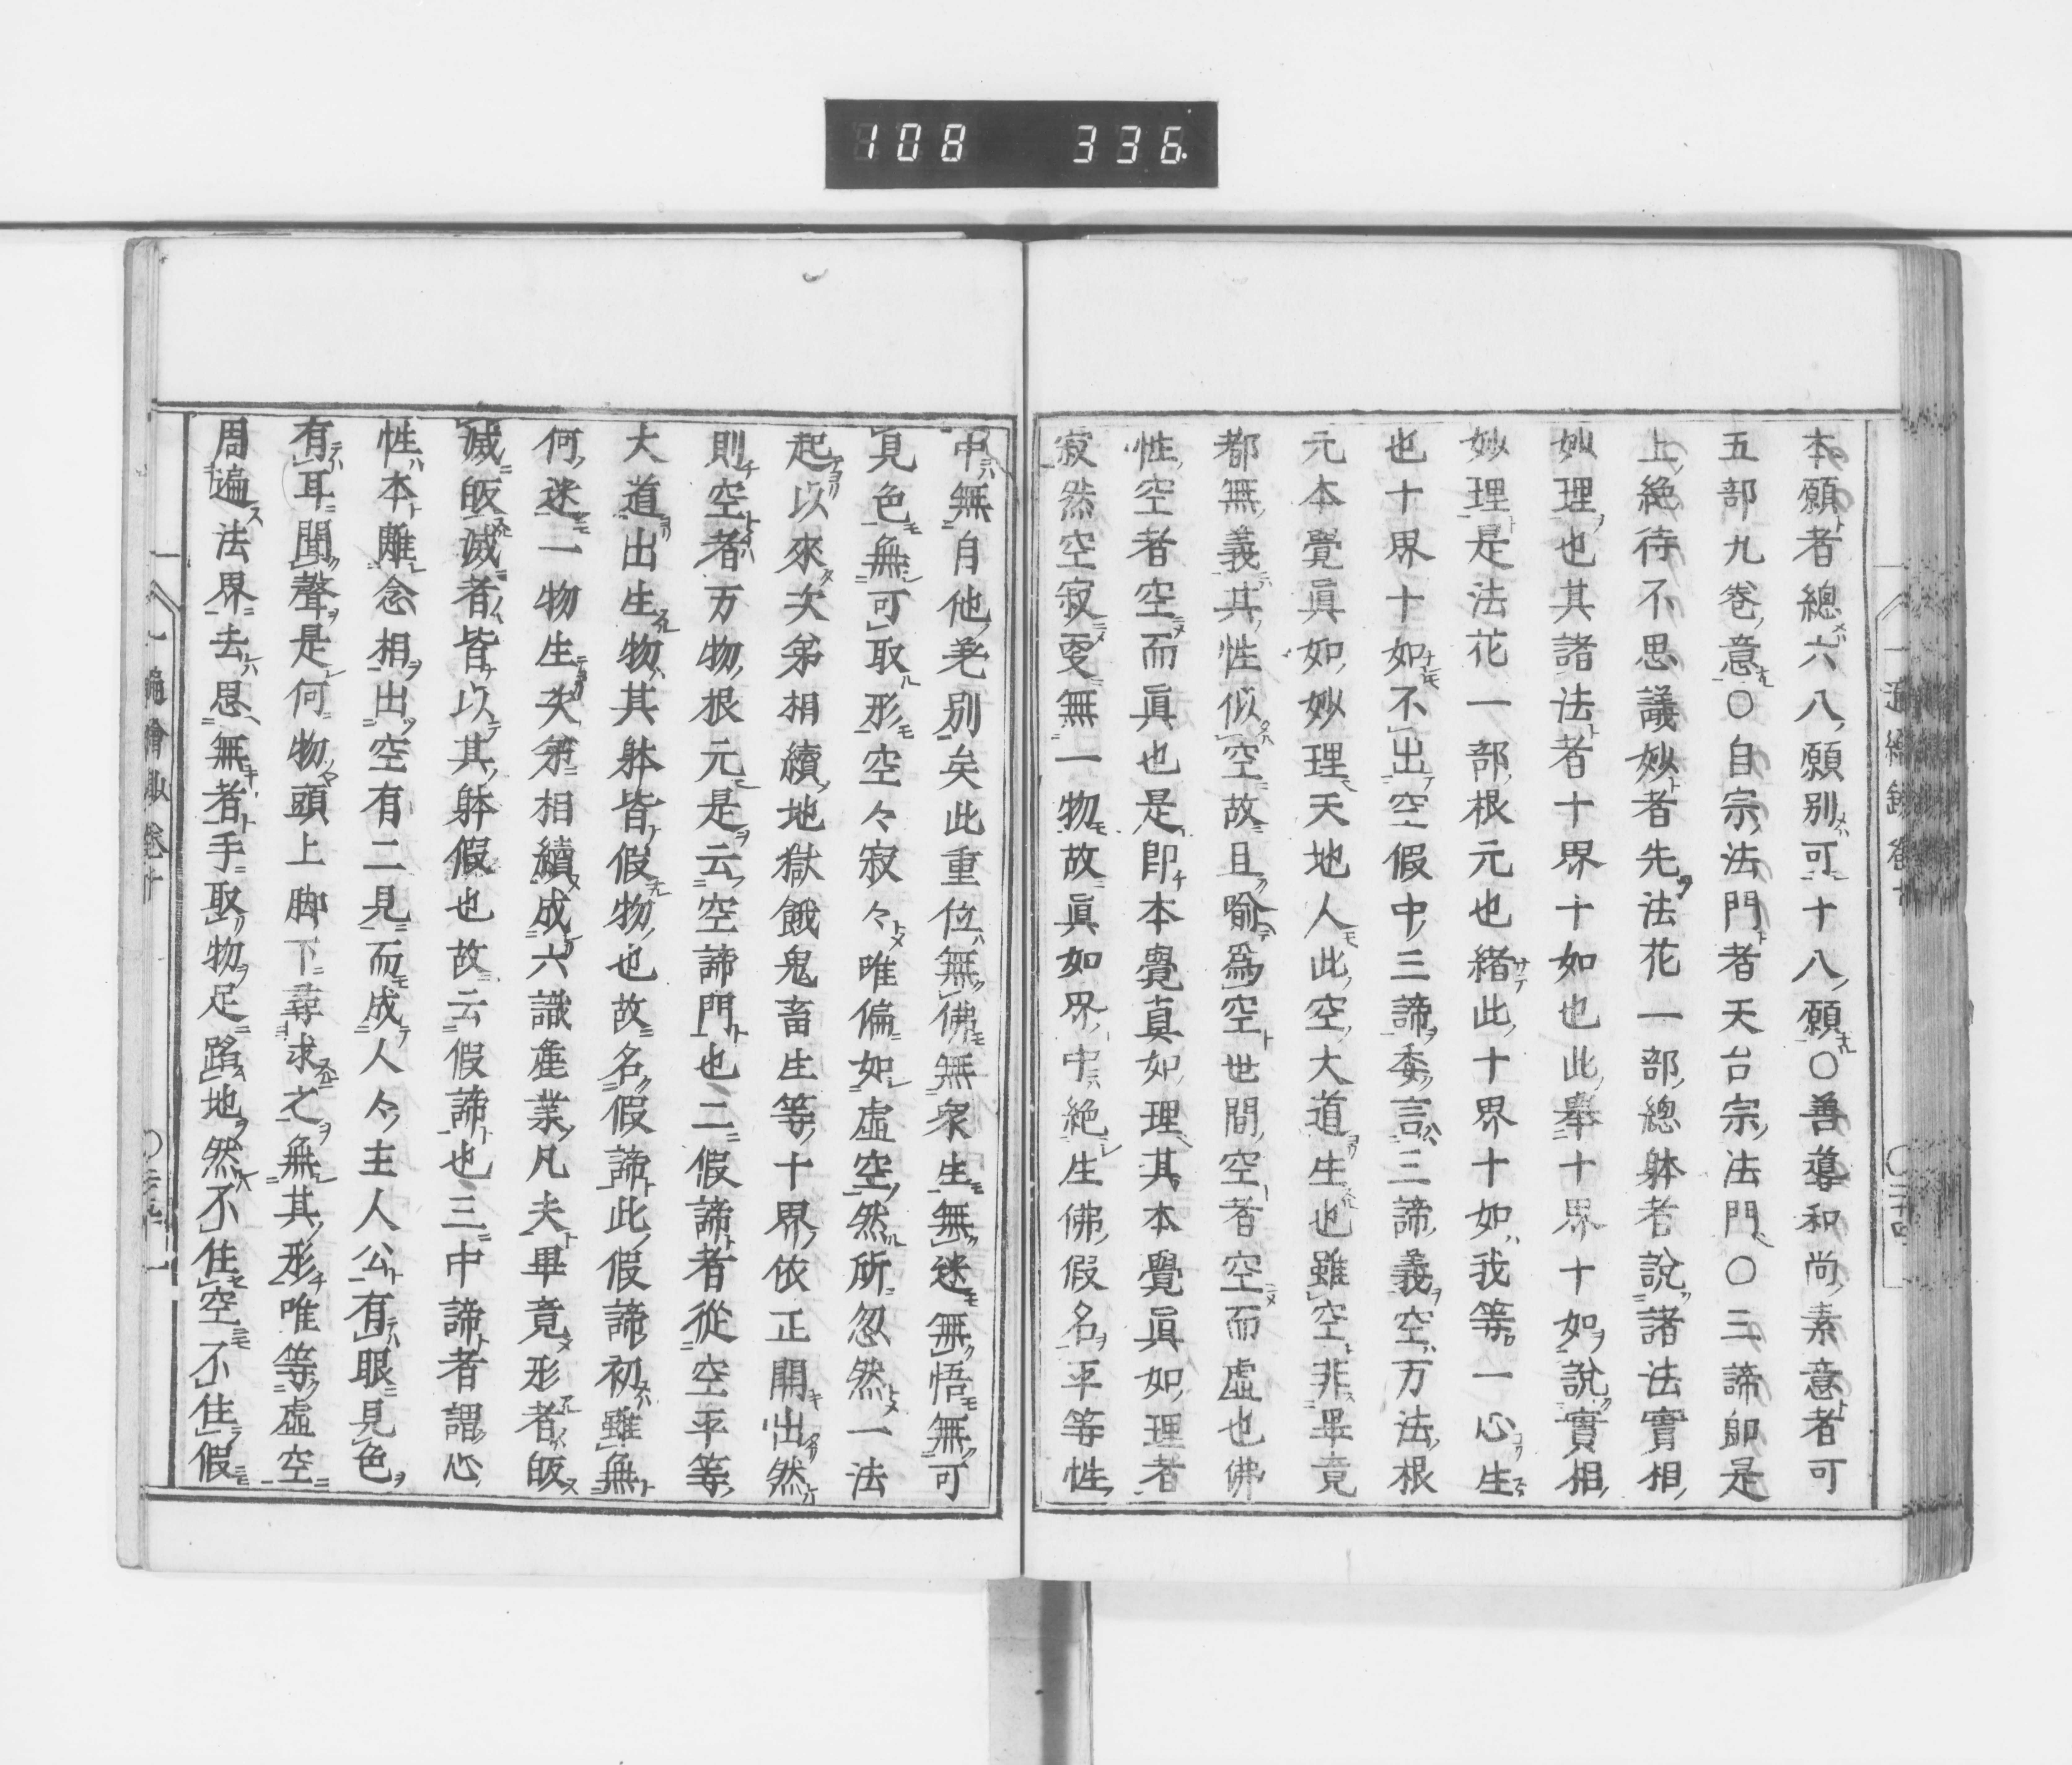 108 336
本願者總六八願別可十八願〇善導和尚素意者可
五部九卷意〇自宗法門者天台宗法門〇三諦卽是
上絶待不思議妙者先法花一部總躰者說諸法實相
妙理也其諸法者十界十如也此舉十界十如說實相
妙理是法花一部根元也緒此十界十如我等一心生
也十界十如不出空假中三諦委言三諦義空万法根
元本覺眞如妙理天地人此空大道生也雖空非畢竟
都無義其性似空故且喩爲空世間空者空而虛也佛
性空者空而眞也是卽本覺眞如理其本覺眞如理者
寂然空寂更無一物故眞如界中絶生佛假名平等性
中無自他差別矣此重位無佛無衆生無迷無悟無可
見色無可取形空々寂々唯偏如虛空然所忽然一法
起以來次第相續地獄餓鬼畜生等十界依正開出然
則空者万物根元是云空諦門也二假諦者從空平等
大道出生物其躰皆假物也故名假諦此假諦初雖無
何迷一物生次第相續成六識產業凡夫畢竟形者皈
滅皈滅者皆以其躰假也故云假諦也三中諦者謂心
性本離念相出空有二見而成人々主人公有眼見色
有耳聞聲是何物頭上脚下尋求之無其形唯等虛空
周遍法界去思無者手取物足踏地然不住空不住假